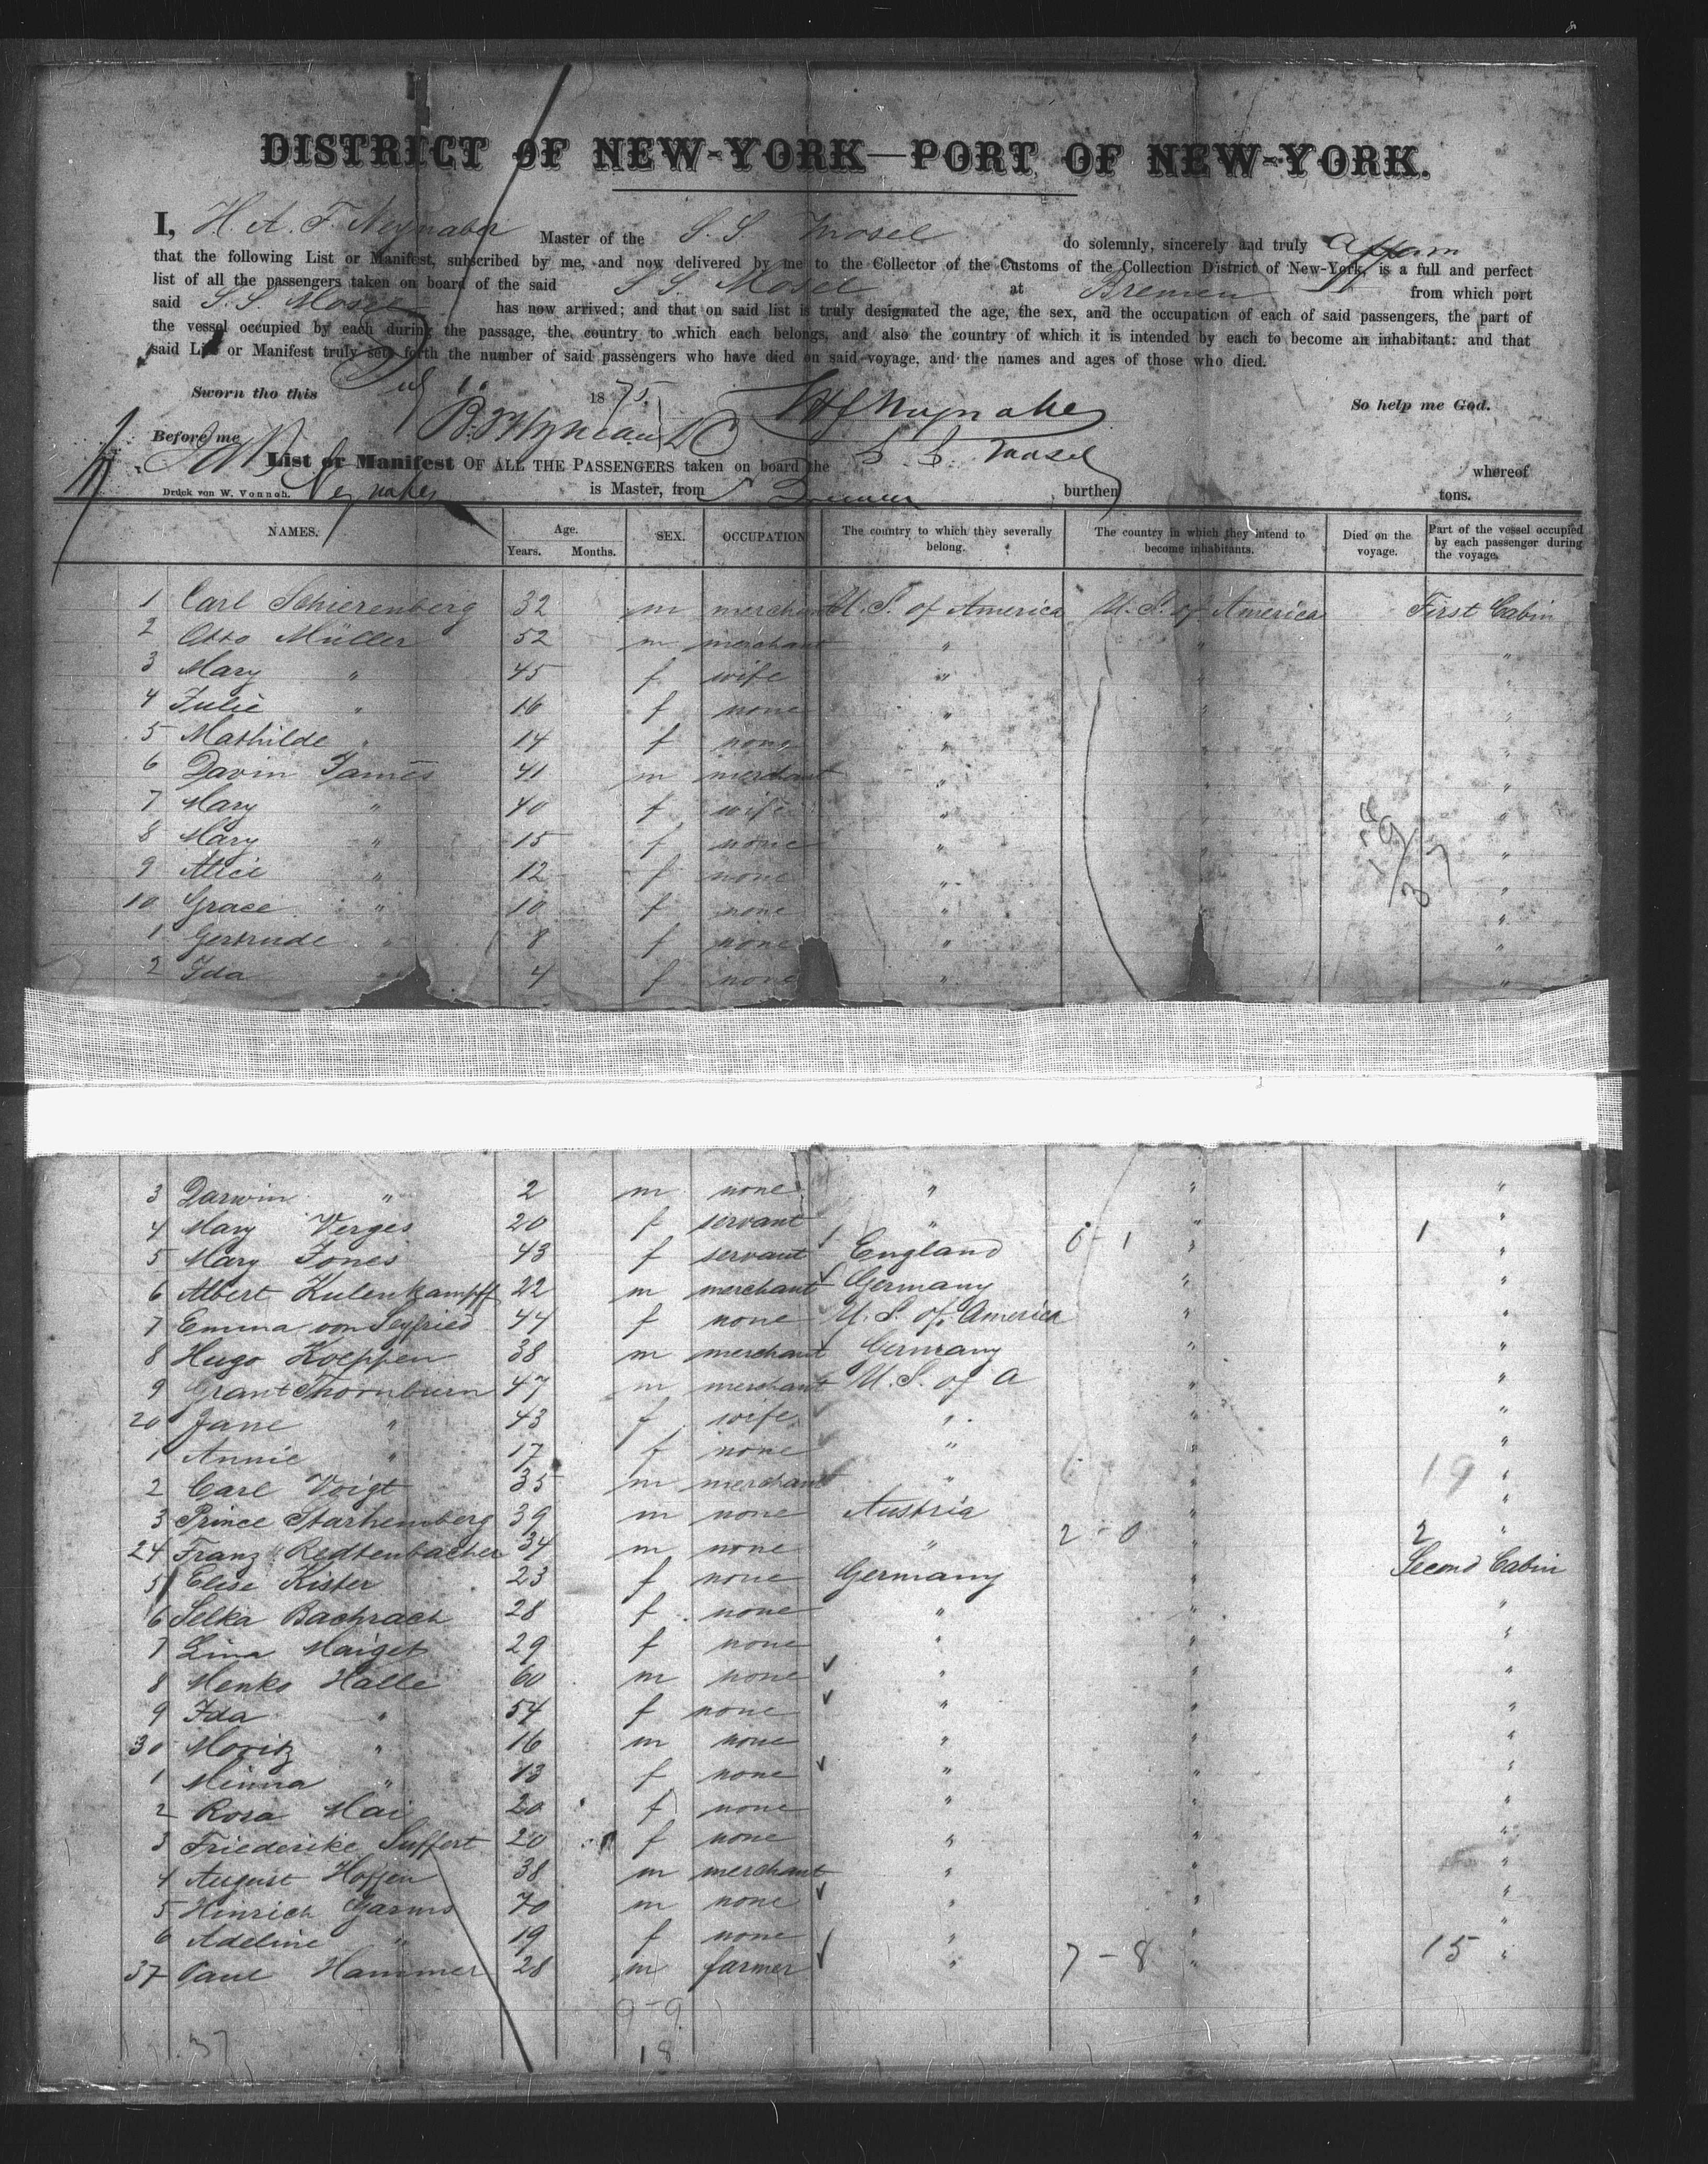 DISTRICT OF NEW-YORK—PORT OF NEW-YORK.
I, H. A. F. Neynaber Master of the S. S. Mosel do solemnly, sincerely and truly affirm
that the following List or Manifest, subscribed by me, and now delivered by me to the Collector of the Customs of the Collection District of New-York, is a full and perfect
list of all the passengers taken on board of the said S. S. Mosel at Bremen from which port
said S. S. Mosel has now arrived; and that on said list is truly designated the age, the sex, and the occupation of each of said passengers, the part of
the vessel occupied by each during the passage, the country to which each belongs, and also the country of which it is intended by each to become an inhabitant: and that
said List or Manifest truly sets forth the number of said passengers who have died on said voyage, and the names and ages of those who died.
Sworn tho this 1875. So help me God.
Before me
List or Manifest OF ALL THE PASSENGERS taken on board the S. S. Mosel whereof
Druck von W. Vonnoh. Neynaber is Master, from Bremen burthen tons.
NAMES. Age. Years. Months. SEX. OCCUPATION The country to which they severally belong. The country in which they intend to become inhabitants. Died on the voyage. Part of the vessel occupied by each passenger during the voyage.
1 Carl Schierenberg 32 m merchant U. S. of America U. S. of America First Cabin
2 Otto Müller 52 m merchant " " "
3 Mary " 45 f wife " " "
4 Julie " 16 f none " " "
5 Mathilde " 14 f none " " "
6 Davin James 41 m merchant " " "
7 Mary " 40 f wife " " "
8 Mary " 15 f none " " "
9 Alice " 12 f none " " "
10 Grace " 10 f none " " "
1 Gertrude " 8 f none " "
2 Ida " 4 f none " "
3 Darwin " 2 m none " " "
4 Mary Verges 20 f servant " " "
5 Mary Jones 43 f servant England 0-1 " 1 "
6 Albert Kulenkampff 22 m merchant Germany " "
7 Emma von Seyfried 44 f none U. S. of America " "
8 Hugo Koeppen 38 m merchant Germany " "
9 Grant Thornburn 47 m merchant U. S. of A " "
20 Jane " 43 f wife " " "
1 Annie " 17 f none " " "
2 Carl Voigt 35 m merchant " " 19 "
3 Prince Starhemberg 39 m none Austria " "
24 Franz Redtenbacher 34 m none " 2-0 " 2 "
5 Elise Kister 23 f none Germany " Second Cabin
6 Selka Bachrach 28 f none " " "
7 Lina Maiget 29 f none " " "
8 Menko Halle 60 m none " " "
9 Ida " 54 f none " " "
30 Moritz " 16 m none " " "
1 Minna " 13 f none " " "
2 Rosa Mai 20 f none " " "
3 Friederike Suffert 20 f none " " "
4 August Hoffen 38 m merchant " " "
5 Hinrich Garms 70 m none " " "
6 Adeline " 19 f none " " "
37 Paul Hammer 28 m farmer " 7-8 " 15 "
9-9
37 18